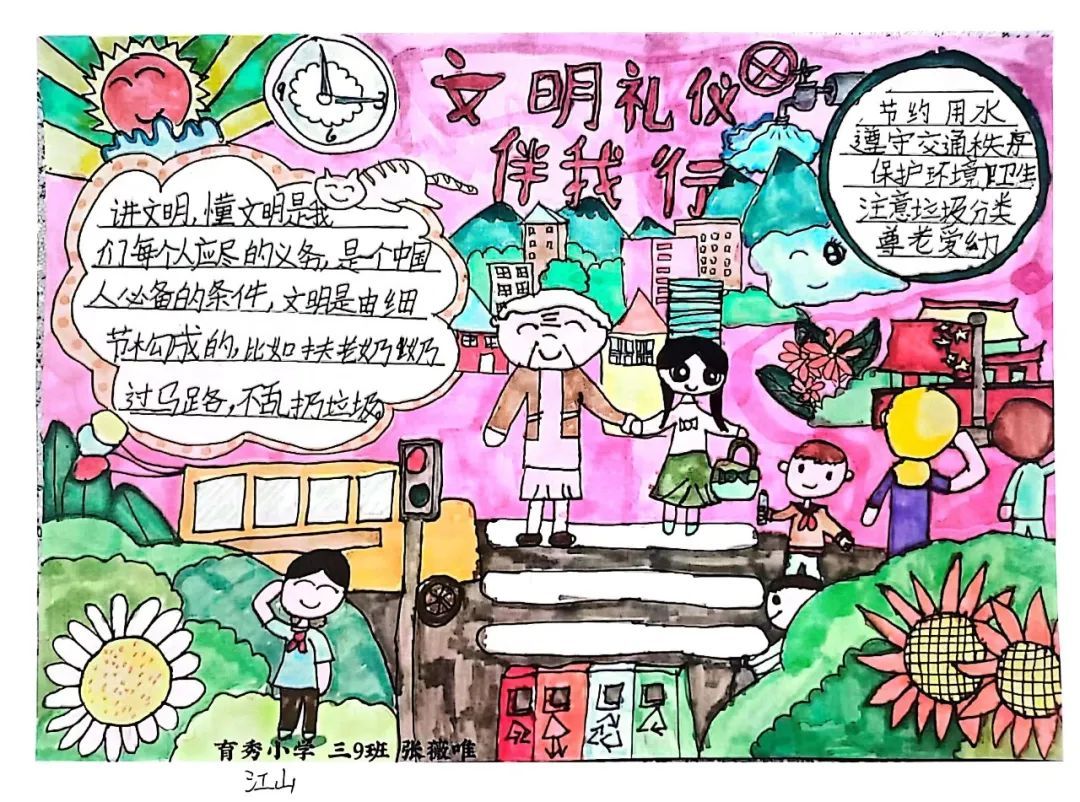 文明礼仪
伴我行
讲文明,懂文明是我
们每个人应尽的义务,是个中国
人必备的条件,文明是由细
节构成的,比如扶老奶奶
过马路,不乱扔垃圾。
节约用水
遵守交通秩序
保护环境卫生
注意垃圾分类
尊老爱幼
育秀小学 三9班 张薇唯
江山